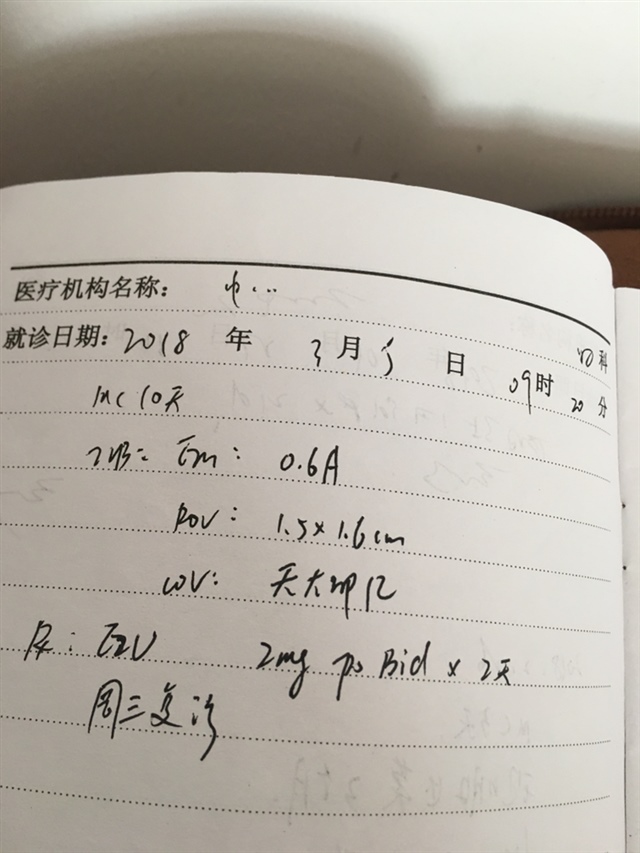 医疗机构名称: 中...
就诊日期: 2018 年 3 月 5 日 09 时 20 分 科
MC 10天
TVB: Em: 0.6A
ROV: 1.5 x 1.6 cm
LOV: 无大卵泡
R: E2V 2mg po Bid x 2天
周三复诊